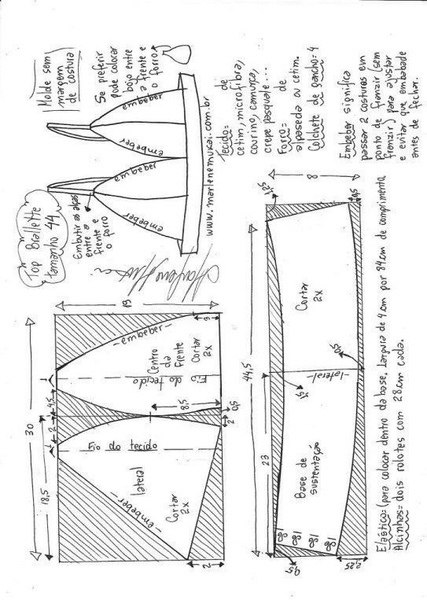 Molde sem
margem
de costura
Se preferir
pode colocar
bojo entre
a frente e
o forro
embeber
embeber
embeber
embeber
www.marlenemukai.com.br
Top Brallette
tamanho 44
Embutir as alças
entre a
frente e
o forro
Tecido: de
cetim, microfibra,
courino, camurça,
crepe pasquale...
Forro = de
alpaseda ou cetim.
Colchete de gancho: 4
Embeber significa
passar 2 costuras em
ponto de franzir (sem
franzir) para ajustar
e evitar que embabade
antes de fechar.
30
18,5
2
4,5
19
embeber
Centro
da
frente
Fio
do tecido
Cortar
2x
3
8,5
0,5
2
Fio do tecido
lateral
embeber
Cortar
2x
2
44,5
23
8
1,5
0,5
Cortar
2x
lateral
Base de
sustentação
0,5
2,25
Elástico: (para colocar dentro da base, largura de 4 cm por 84 cm de comprimento
Alcinhas = dois rolotes com 28 cm cada.